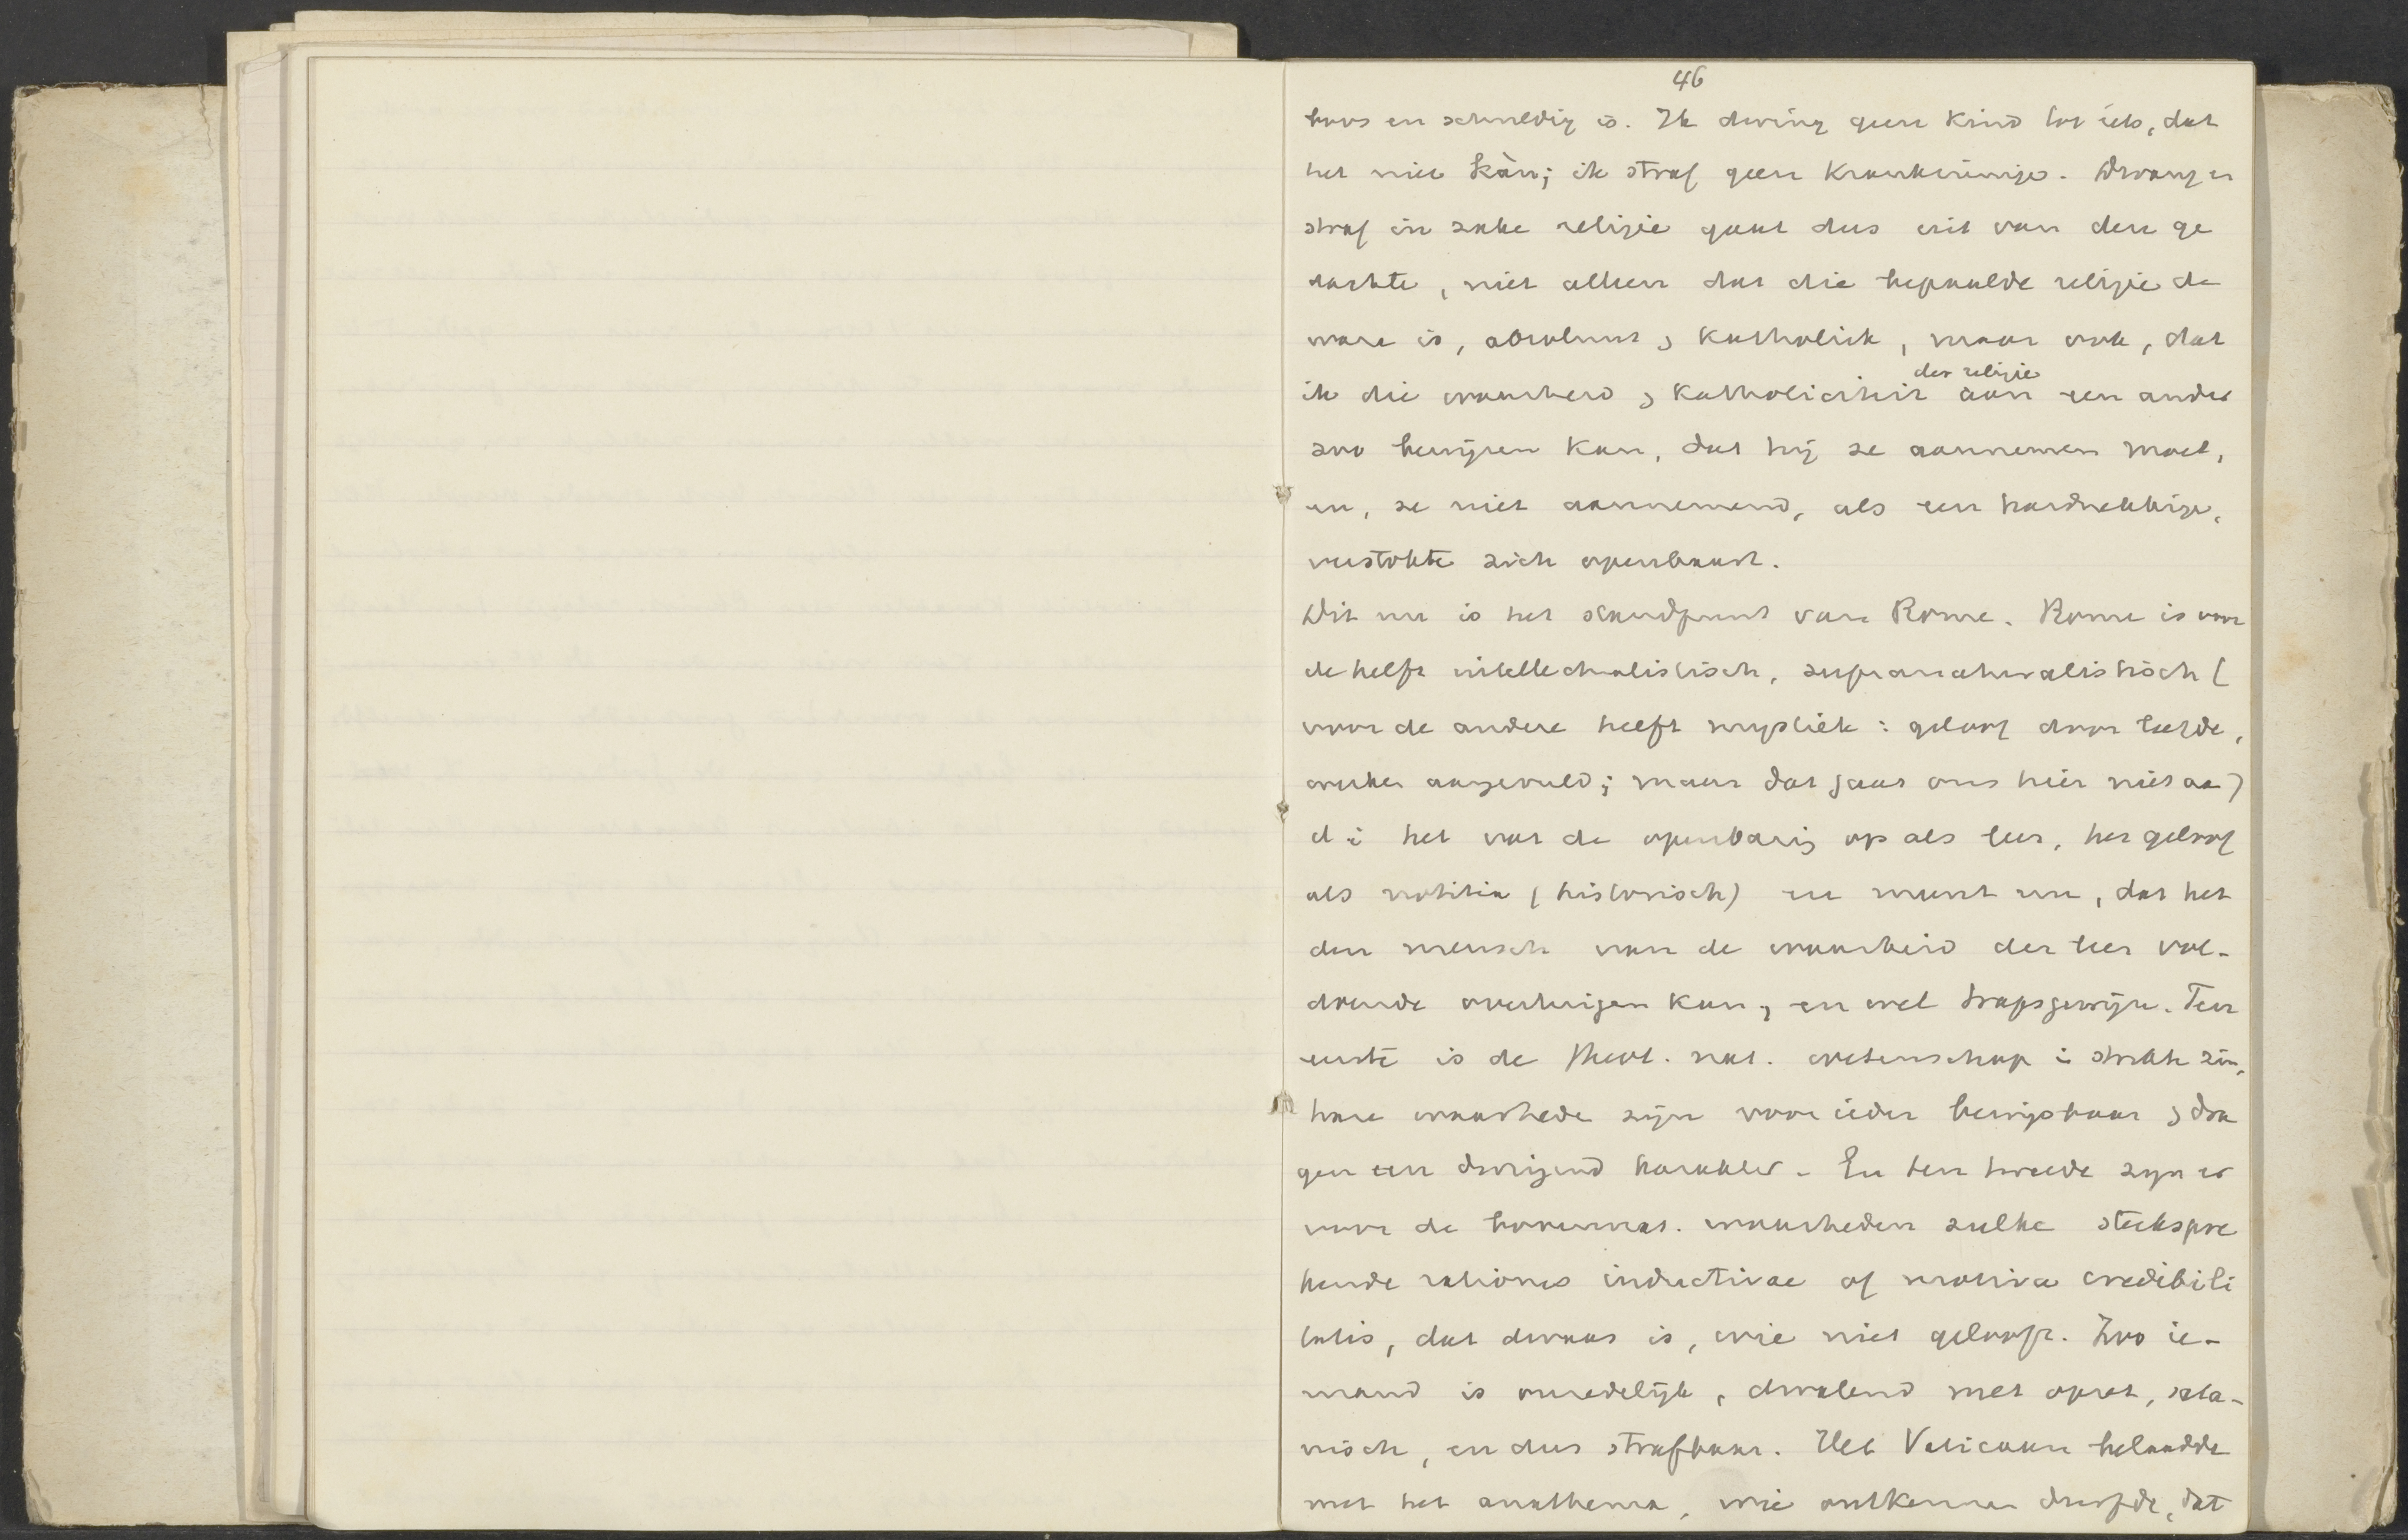 46
boos en schuldig is. Ik dwing geen kind tot iets, dat
het niet kàn; ik straf geen krankzinnige. Dwang en
straf in zake religie gaat dus uit van den ge
dachte, niet alleen dat die bepaalde religie de
ware is, absoluut, katholiek, maar ook, dat
der religie
ik die waarheid, katholiciteit aan een ander
zoo bewijzen kan, dat hij ze aannemen moet,
en, ze niet aannemend, als een hardnekkige,
verstokte zich openbaart.
Dit nu is het standpunt van Rome. Rome is voor
de helft intellectualistisch, supranaturalistisch (
voor de andere helft mystiek: geloof door liefde,
werken aangevuld; maar dat gaat ons hier niet aan)
d i het vat de openbaring op als leer, het geloof
als notitia (historisch) en meent nu, dat het
den mensch van de waarheid der leer vol-
doende overtuigen kan, en wel trapsgewijze. Ten
eerste is de theol. nat. wetenschap in strikte zin,
hare waarheden zijn voor ieder bewijsbaar, dra
gen een dwingend karakter. En ten tweede zijn er
voor de bovennat. waarheden zulke sterkspre
kende rationes inductivae of motiva credibili
tatis, dat dwaas is, wie niet gelooft. Zoo ie-
mand is onredelijk, dwalend met opzet, sata-
nisch, en dus strafbaar. Het Vaticaan belaadde
met het anathema, wie ontkennen durfde, dat